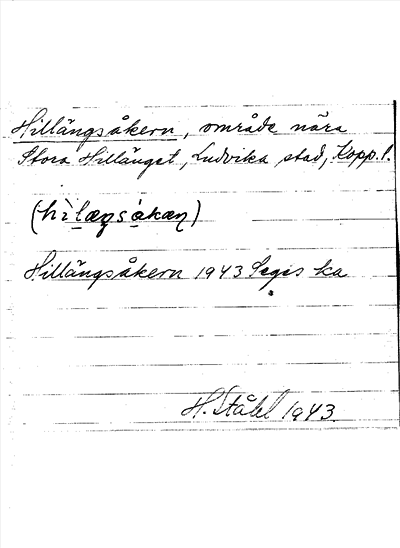 Hillängsåkern, område nära
Stora Hillänget, Ludvika stad, Kopp. l.
(hìlæŋsákæɳ)
Hillängsåkern 1943 Seges ka
H. Ståhl 1943.